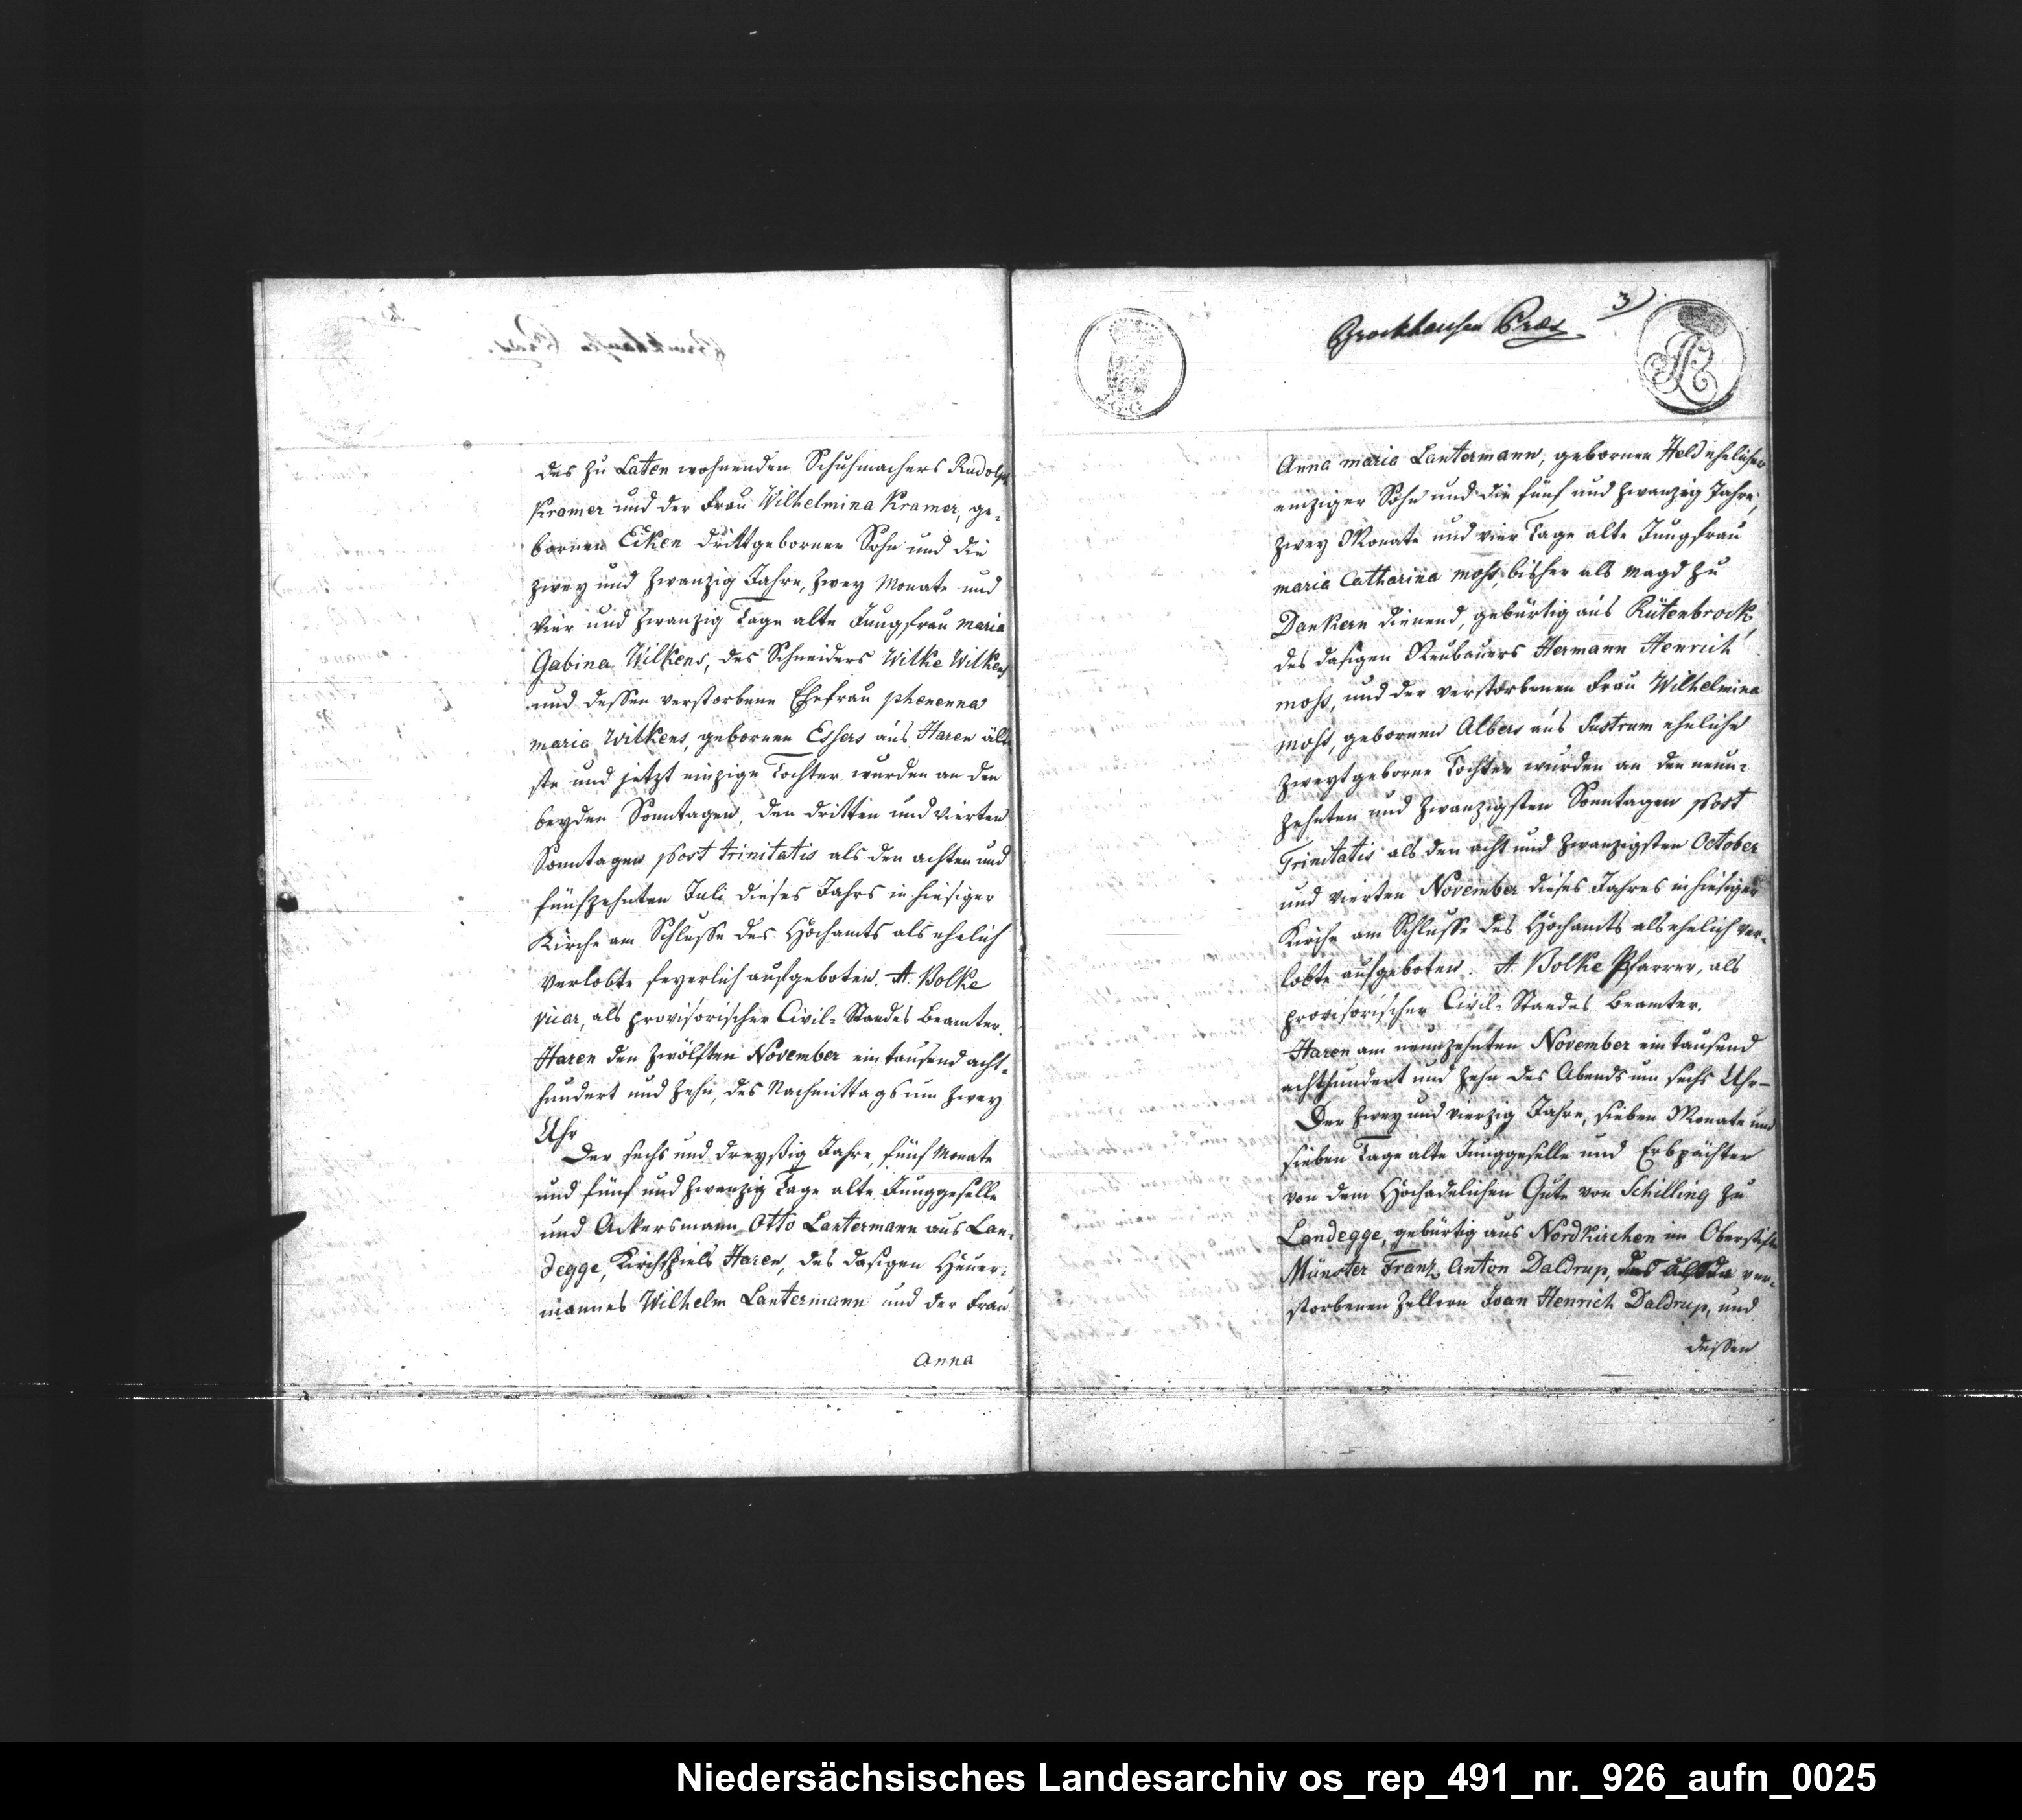 des zu Laten wohnenden Schuhmachers Rudolph
Kramer und der Frau Wilhelmina Kramer, ge-
bornen Eiken drittgeborner Sohn und die
zwey und zwanzig Jahre, zwey Monate und
vier und zwanzig Tage alte Jungfrau Maria
Gabina Wilkens, des Schneiders Wilke Wilkens
und dessen verstorbene Ehefrau phenenna
maria Wilkens, gebornen Essers aus Haren älte
ste und jetzt einzige Tochter wurden an den
beyden Sonntagen, den dritten und vierten
Sonntagen post trinitatis als den achten und
fünfzehnten Juli dieses Jahrs in hiesiger
Kirche am Schlusse des Hochamts als ehelich
verlobte feyerlich aufgeboten. A. Volke
vicar, als provisorischer Civil-Standes Beamter.
Haren den zwölften November ein tausend acht-
hundert und zehn, des Nachmittags um zwey
Uhr
Der sechs und dreyßig Jahre, fünf Monate
und fünf und zwanzig Tage alte Junggeselle
und Ackersmann Otto Lantermann aus Lan-
degge, Kirchspiels Haren, des dasigen Heuer-
mannes Wilhelm Lantermann und der Frau
Anna
Brockhausen Präs
3)
Anna maria Lantermann, gebornen Held ehelicher
einziger Sohn und die fünf und zwanzig Jahre,
zwey Monate und vier Tage alte Jungfrau
maria Catharina moß, bisher als Magd zu
Dankern dienend, gebürtig aus Rütenbrock,
des dasigen Neubauers Hermann Henrich
moß, und der verstorbenen Frau Wilhelmina
moß, gebornen Albers aus Sustrum eheliche
zweytgeborne Tochter wurden an den neun-
zehnten und zwanzigsten Sonntagen post
Trinitatis als den acht und zwanzigsten October
und vierten November dieses Jahres in hiesiger
Kirche am Schlusse des Hochamts als ehelich ver-
lobte aufgeboten. A. Volke Pfarrer, als
provisorischer Civil-Standes Beamter.
Haren am neunzehnten November ein tausend
achthundert und zehn des Abends um sechs Uhr-
Der zwey und vierzig Jahre, sieben Monate und
sieben Tage alte Junggeselle und Erbpächter
von dem Hochadelichen Gute von Schilling zu
Landegge, gebürtig aus Nordkirchen im Oberstifte
Münster Franz Anton Daldrup, des alda ver-
storbenen Zellern Joan Henrich Daldrup, und
dessen
Niedersächsisches Landesarchiv os_rep_491_nr._926_aufn_0025